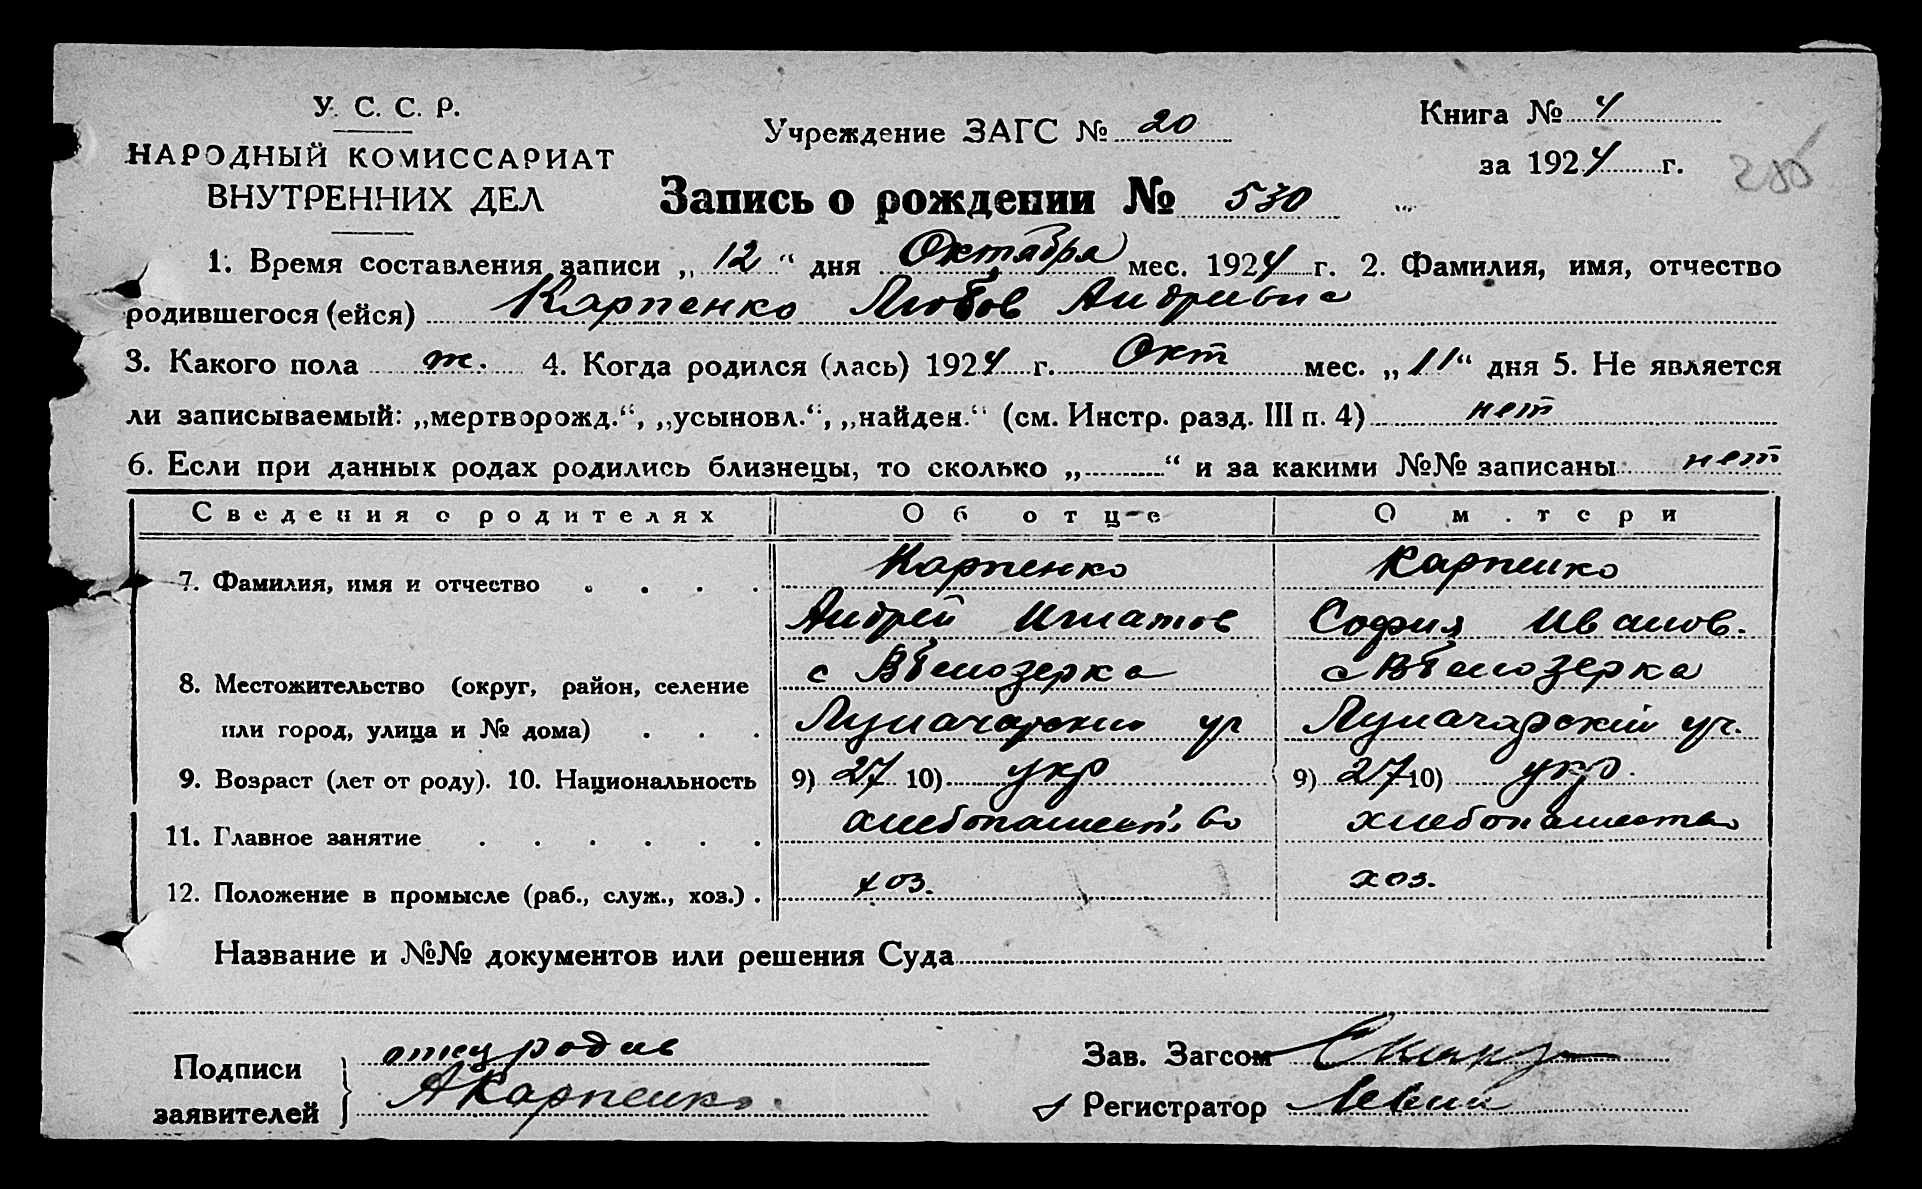 У. С. С. Р.
НАРОДНЫЙ КОМИССАРИАТ
ВНУТРЕННИХ ДЕЛ
Учреждение ЗАГС № 20
Книга № 4
за 1924 г.
Запись о рождении № 530
1. Время составления записи „12“ дня Октября мес. 1924 г. 2. Фамилия, имя, отчество
родившегося (ейся) Карпенко Любов
3. Какого пола ж. 4. Когда родился (лась) 1924 г. Окт мес. „11“ дня 5. Не является
ли записываемый: „мертворожд.“, „усыновл.“, „найден.“ (см. Инстр. разд. III п. 4) нет
6. Если при данных родах родились близнецы, то сколько „ “ и за какими №№ записаны нет
Сведения о родителях Об отце О м.тери
7. Фамилия, имя и отчество Карпенко Карпенко
Андрей Игнатов София Иванов.
с Белозерка с Белозерка
8. Местожительство (округ, район, селение
или город, улица и № дома) ул
9. Возраст (лет от роду). 10. Национальность 9) 27 10) укр 9) 27 10) укр.
11. Главное занятие хлебопашество хлебопашество
12. Положение в промысле (раб., служ., хоз.) хоз. хоз.
Название и №№ документов или решения Суда
Подписи
заявителей
отец
АКарпенко
Зав. Загсом
Регистратор Левин